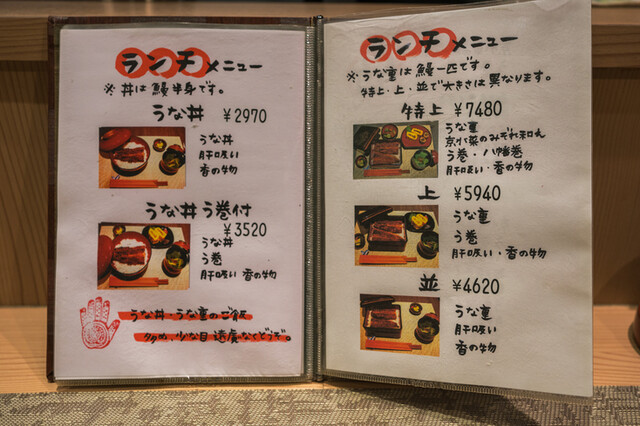 ランチメニュー
※丼は鰻半身です。
うな丼 ¥2970
うな丼
肝吸い
香の物
うな丼う巻付
¥3520
うな丼
う巻
肝吸い・香の物
うな丼・うな重のご飯
多め、少な目 遠慮なくどうぞ。
ランチメニュー
※うな重は鰻一匹です。
特上・上・並で大きさは異なります。
特上 ¥7480
うな重
京水菜のみぞれ和え
う巻・八幡巻
肝吸い・香の物
上 ¥5940
うな重
う巻
肝吸い・香の物
並 ¥4620
うな重
肝吸い
香の物